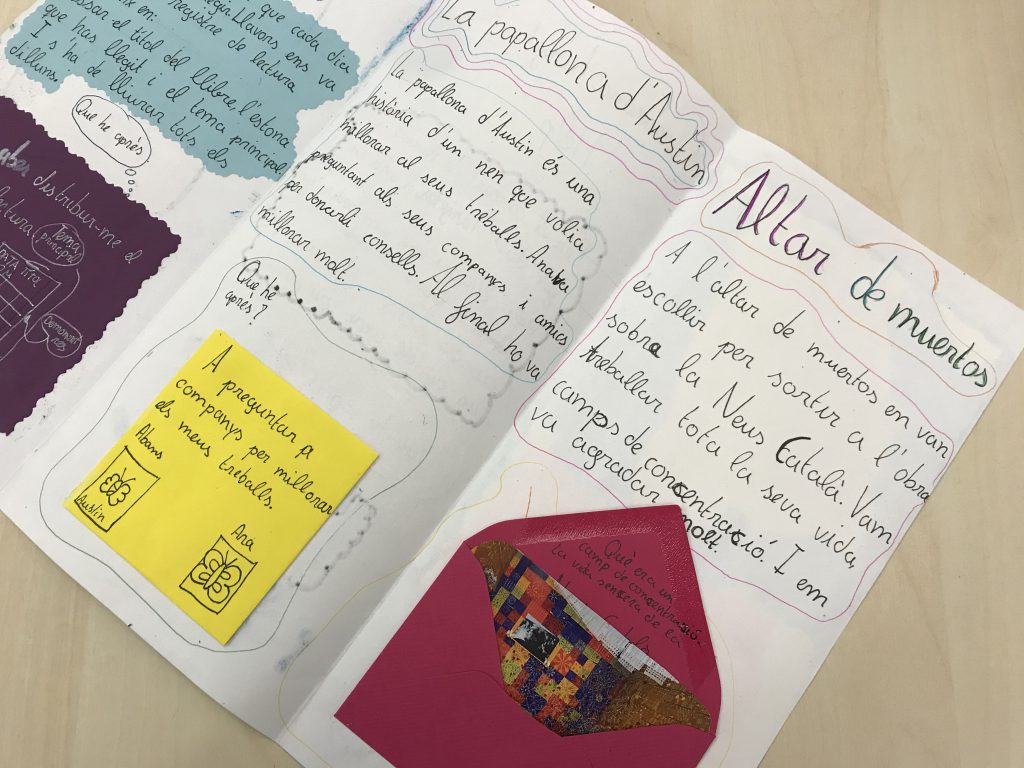 i que cada dia
Llavors ens va
registre de lectura
en:
el títol del llibre, l'estona
que has llegit i el tema principal.
I s'ha de lliurar tots els
dilluns.
Què he après
distribuir-me el
Tema
principal
La papallona d'Austin
La papallona d'Austin és una
història d'un nen que volia
millorar al seus treballs. Anava
preguntant als seus companys i amics
per donarli consells. Al final ho va
millorar molt.
Què he
après?
A preguntar a
companys per millorar
els meus treballs.
Abans
Austin
Ara
Altar de muertos
A l'altar de muertos en van
escollir per sortir a l'obra
sobra la Neus Català. Vam
treballar tota la seva vida,
camps de concentració. I em
va agradar molt.
Què era un
camp de concentració.
La vida sencera de la